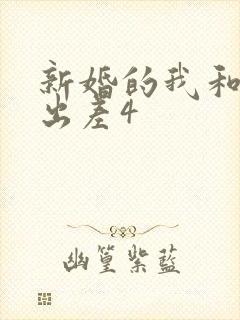 新婚的我和
出差4
幽篁紫藍